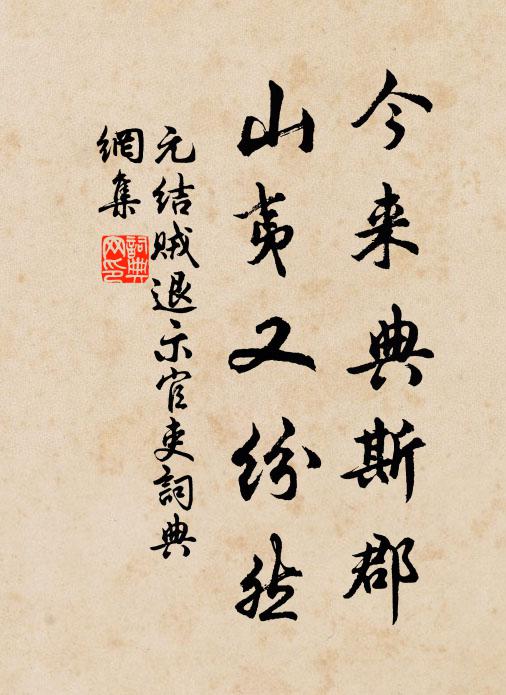 今来典斯郡
山夷又纷然
元结贼退示官吏詞典
網集
詞典网印